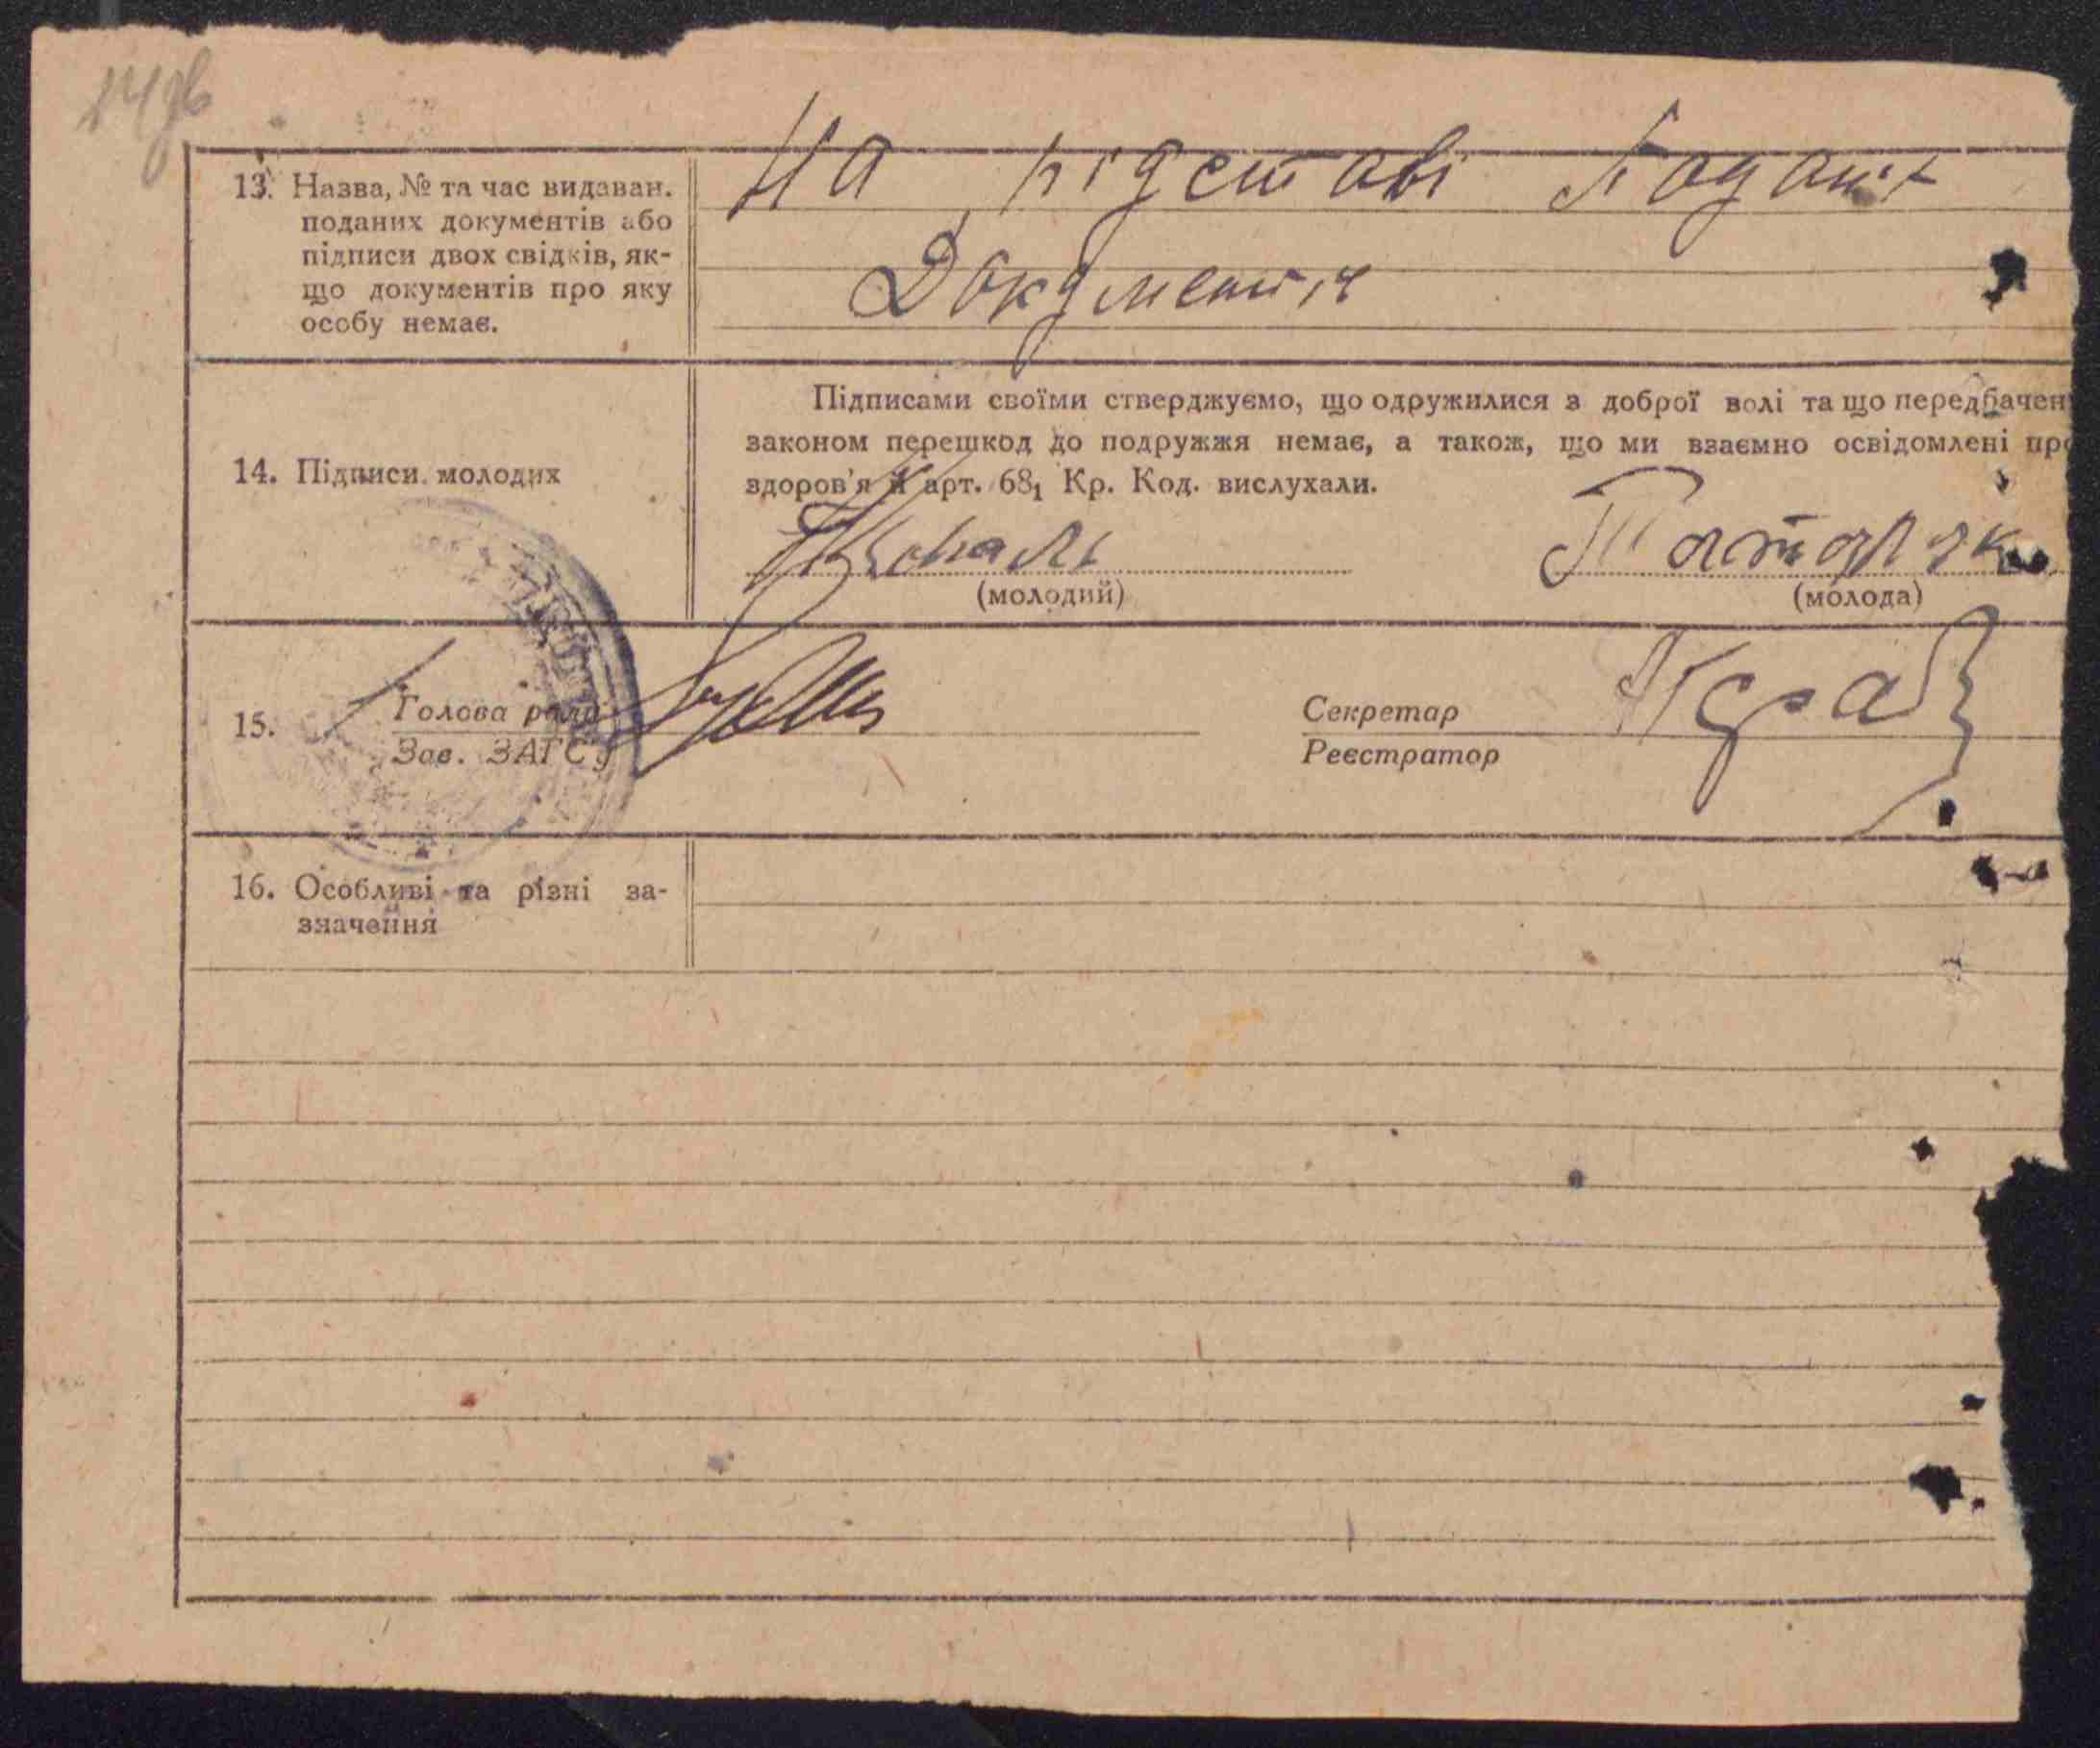 14зв
13. Назва, № та час видаван.
поданих документів або
підписи двох свідків, як-
що документів про яку
особу немає.
На підставі Поданих
Документів
14. Підписи молодих
Підписами своїми стверджуємо, що одружилися з доброї волі та що передбачен
законом перешкод до подружжя немає, а також, що ми взаємно освідомлені про
здоров'я й арт. 68₁ Кр. Код. вислухали.
(молодий)
(молода)
15.
Голова ради
Зав. ЗАГСу
Секретар
Реєстратор
16. Особливі та різні за-
значення